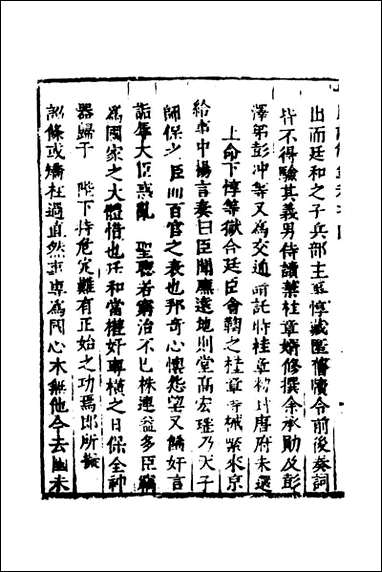 出而廷和之子兵部主事惇藏匿舊牘令前後奏詞
皆不得驗其義男侍讀葉桂章婿修撰余承勛及彭
澤弟彭冲等又為交通請託時桂章封唐府未還
上命下惇等獄令廷臣會鞫之桂章等械繫來京
給事中楊言奏曰臣聞廉遠地則堂高宏璀乃天子
師保之臣而百官之表也邦奇心懷怨望文飾奸言
詬辱大臣惑亂　聖聽若窮治不已株連益多臣竊
為國家之大體惜也廷和當權奸專橫之日保全神
器歸于　陛下持危定難有正始之功焉即所擬
詔條或矯枉過直然事專為國心本無他今去國未